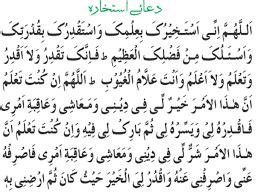 دعائے استخارہ
اَللّٰهُمَّ اِنِّىْ اَسْتَخِيْرُكَ بِعِلْمِكَ وَاسْتَقْدِرُكَ بِقُدْرَتِكَ
وَاَسْئَلُكَ مِنْ فَضْلِكَ الْعَظِيْمِ ط فَاِنَّكَ تَقْدِرُ وَلَا اَقْدِرُ
وَتَعْلَمُ وَلَا اَعْلَمُ وَاَنْتَ عَلَّامُ الْغُيُوْبِ ط اَللّٰهُمَّ اِنْ كُنْتَ تَعْلَمُ اَنَّ
هٰذَا الْاَمْرَ خَيْرٌ لِّىْ فِىْ دِيْنِىْ وَمَعَاشِىْ وَعَاقِبَةِ اَمْرِىْ
فَاقْدِرْهُ لِىْ وَيَسِّرْهُ لِىْ ثُمَّ بَارِكْ لِىْ فِيْهِ وَاِنْ كُنْتَ تَعْلَمُ اَنَّ
هٰذَا الْاَمْرَ شَرٌّ لِّىْ فِىْ دِيْنِىْ وَمَعَاشِىْ وَعَاقِبَةِ اَمْرِىْ فَاصْرِفْهُ
عَنِّىْ وَاصْرِفْنِىْ عَنْهُ وَاقْدِرْ لِىَ الْخَيْرَ حَيْثُ كَانَ ثُمَّ ارْضِنِىْ بِهٖ